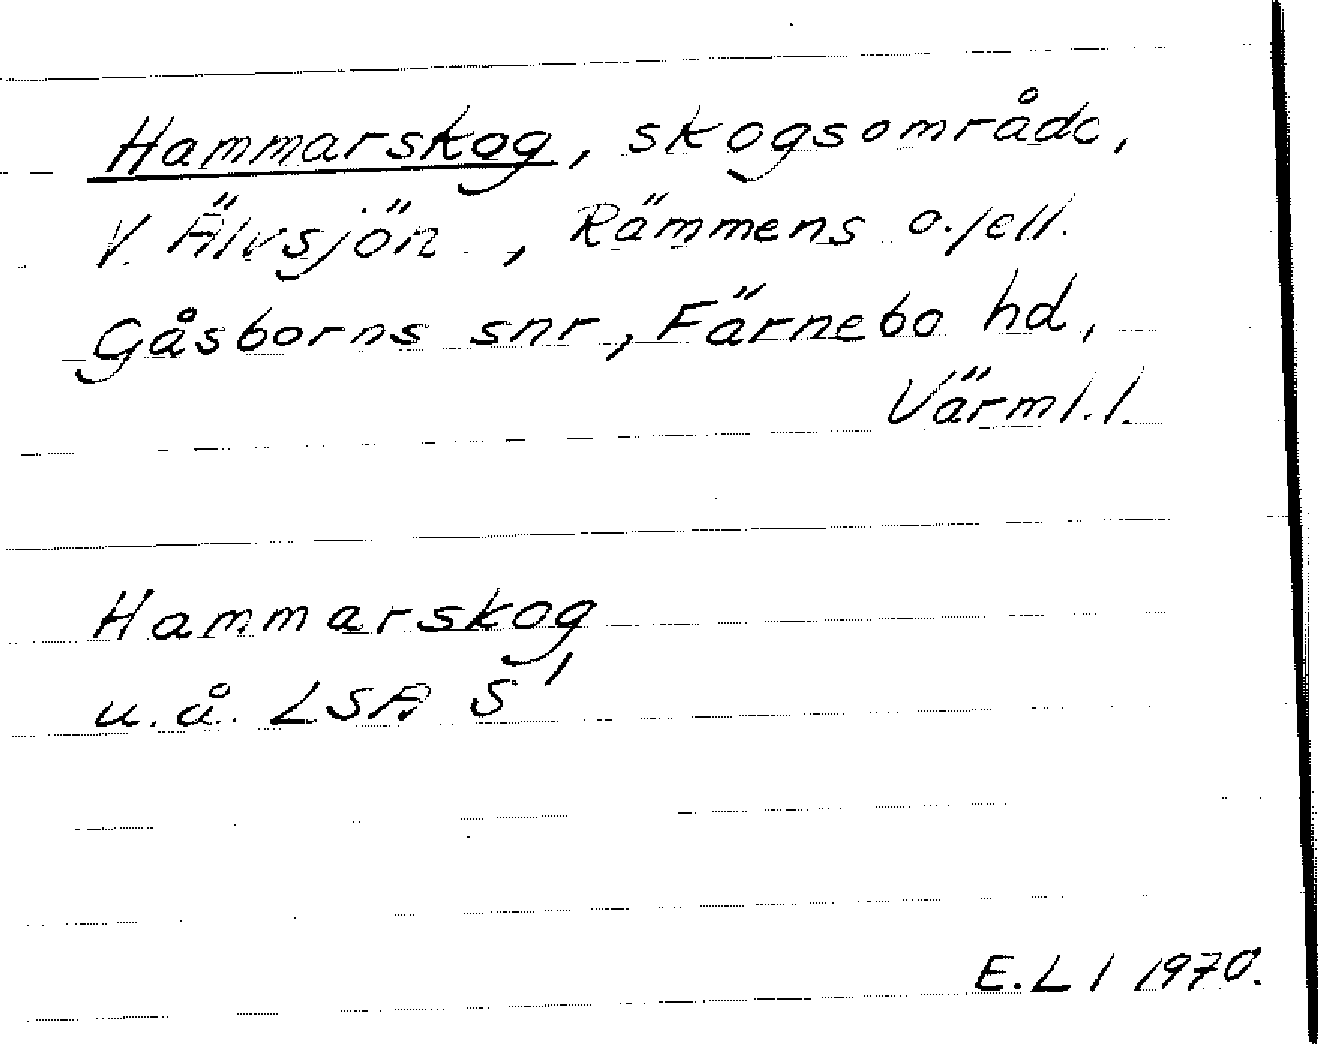 Hammarskog, skogsområde,
V. Älvsjön, Rämmens o./ell.
Gåsborns snr, Färnebo hd,
Värml.l.
Hammarskog
u.å. LSA S'
E.L I 1970.